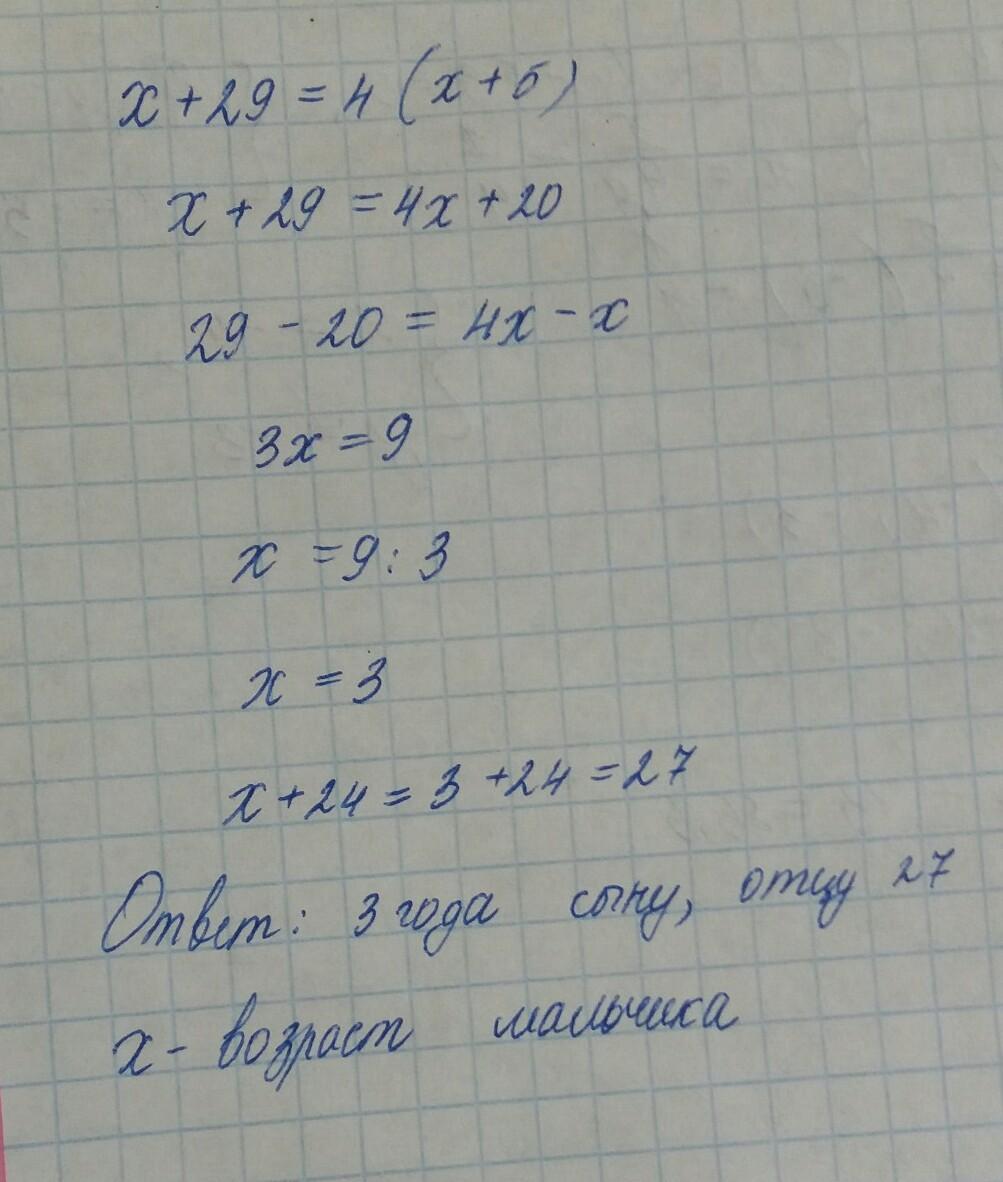 x + 29 = 4 (x + 5)
x + 29 = 4x + 20
29 - 20 = 4x - x
3x = 9
x = 9 : 3
x = 3
x + 24 = 3 + 24 = 27
Ответ: 3 года сыну, отцу 27
x - возраст мальчика